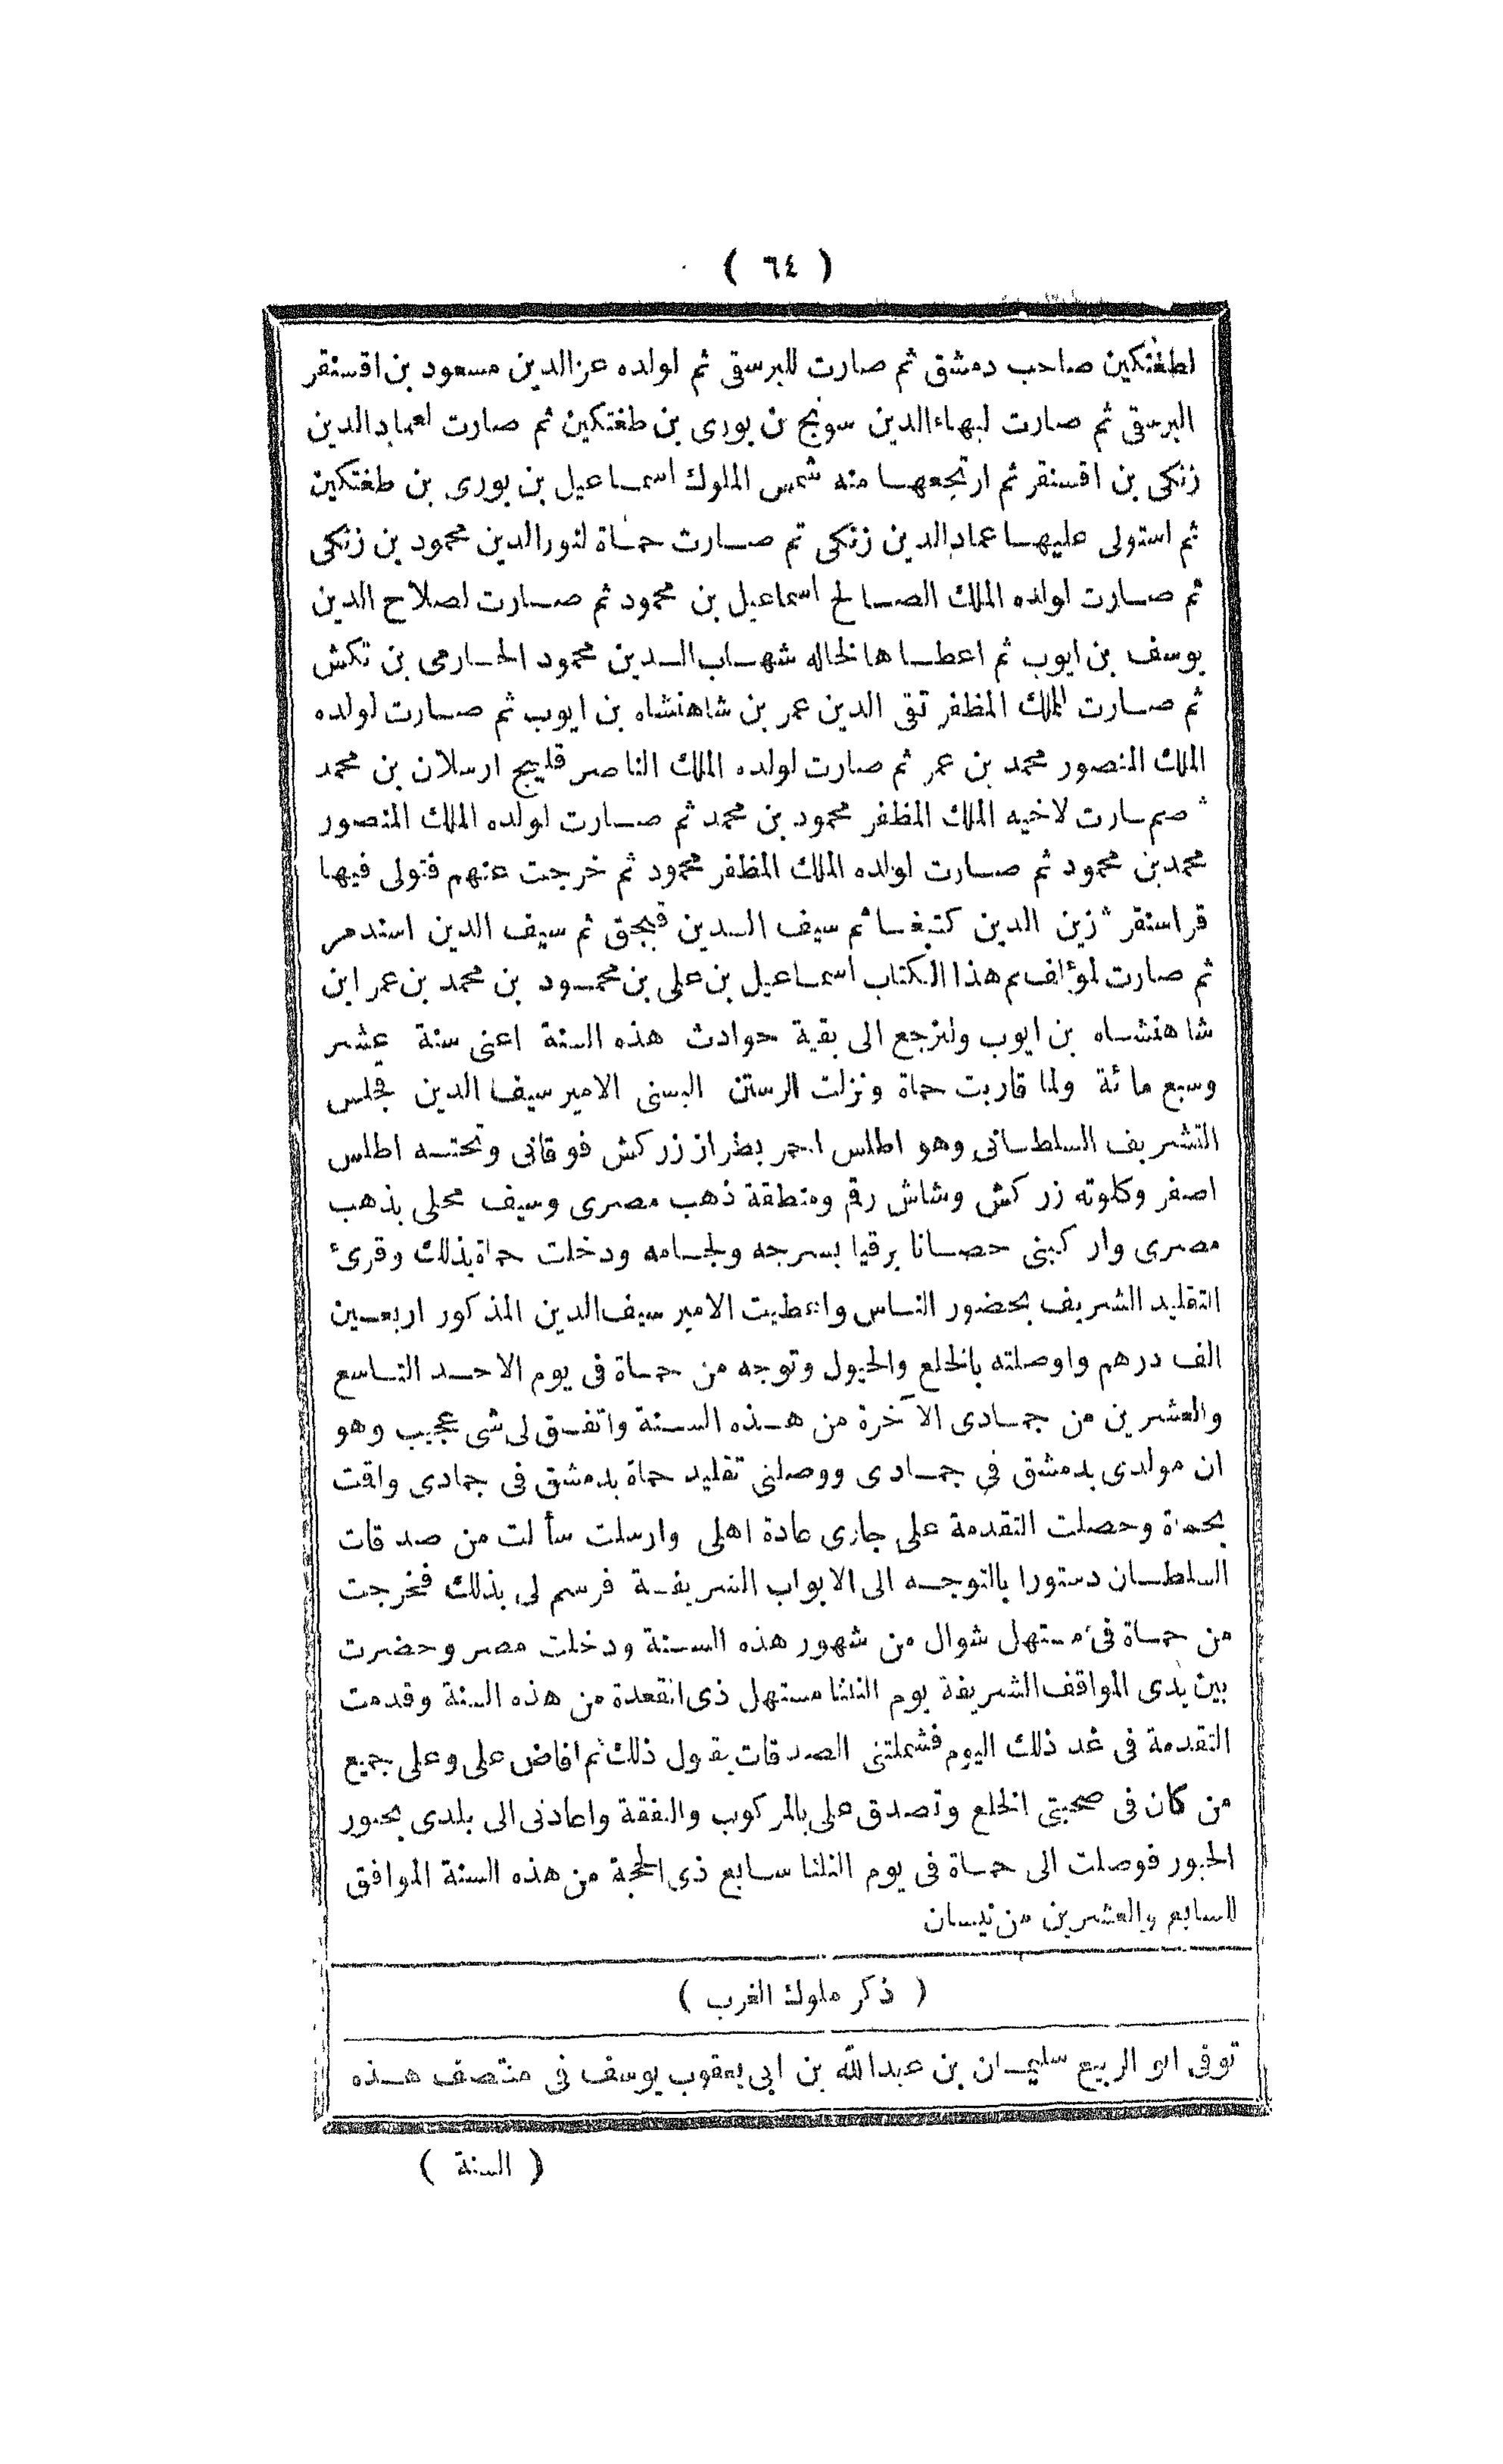 ( ٦٤ )
لطغتكين صاحب دمشق ثم صارت للبرسقى ثم لولده عزالدين مسعود بن اقسنقر
البرسقى ثم صارت لبهاءالدين سونج بن بورى بن طغتكين ثم صارت لعمادالدين
زنكى بن اقسنقر ثم ارتجعهـا منه شمس الملوك اسمـاعيل بن بورى بن طغتكين
ثم استولى عليهـا عمادالدين زنكى ثم صـارت حمـاة لنورالدين محمود بن زنكى
ثم صـارت لولده الملك الصـالح اسماعيل بن محمود ثم صـارت لصلاح الدين
يوسف بن ايوب ثم اعطـاها لخاله شهـاب الـدين محمود الحـارمى بن تكش
ثم صـارت للملك المظفر تقى الدين عمر بن شاهنشاه بن ايوب ثم صـارت لولده
الملك المنصور محمد بن عمر ثم صارت لولده الملك الناصر قليج ارسلان بن محمد
ثم صـارت لاخيه الملك المظفر محمود بن محمد ثم صـارت لولده الملك المنصور
محمد بن محمود ثم صـارت لولده الملك المظفر محمود ثم خرجت عنهم فتولى فيها
قراسنقر ثم زين الدين كتبغـا ثم سيف الـدين قبجق ثم سيف الدين استدمر
ثم صارت لمؤلف هذا الكتاب اسمـاعيل بن على بن محمـود بن محمد بن عمر ابن
شاهنشـاه بن ايوب ولنرجع الى بقية حوادث هذه السنة اعنى سنة عشر
وسبع مائة ولما قاربت حماة ونزلت الرستن البسنى الامير سيف الدين قجلس
التشريف السلطـانى وهو اطلس احمر بطراز زركش فوقانى وتحتـه اطلس
اصفر وكلوته زركش وشاش رقم ومنطقة ذهب مصرى وسيف محلى بذهب
مصرى واركبنى حصـانا برقيا بسرجه ولجـامه ودخلت حماة بذلك وقرئ
التقليد الشريف بحضور النـاس واعطيت الامير سيف الدين المذكور اربعـين
الف درهم واوصلته بالخلع والخيول وتوجه من حمـاة فى يوم الاحـد التـاسع
والعشرين من جمـادى الآخرة من هـذه السـنة واتفـق لى شى عجيب وهو
ان مولدى بدمشق فى جمـادى ووصلنى تقليد حماة بدمشق فى جمادى واقت
بحماة وحصلت التقدمة على جارى عادة اهلى وارسلت سألت من صدقات
السلطـان دستورا بالتوجـه الى الابواب الشريفـة فرسم لى بذلك فخرجت
من حمـاة فى مستهل شوال من شهور هذه السـنة ودخلت مصر وحضرت
بين يدى المواقف الشريفة يوم الثلثا مستهل ذى القعدة من هذه السنة وقدمت
التقدمة فى غد ذلك اليوم فشملتنى الصدقات بقبول ذلك ثم افاض على وعلى جميع
من كان فى صحبتى الخلع وتصدق على بالمركوب والنفقة واعادنى الى بلدى بحبور
الحبور فوصلت الى حمـاة فى يوم الثلثا سـابع ذى الحجة من هذه السنة الموافق
للسابع والعشرين من نيسان
( ذكر ملوك الغرب )
توفى ابو الربيع سليمـان بن عبدالله بن ابى يعقوب يوسف فى منتصف هـذه
( السنة )